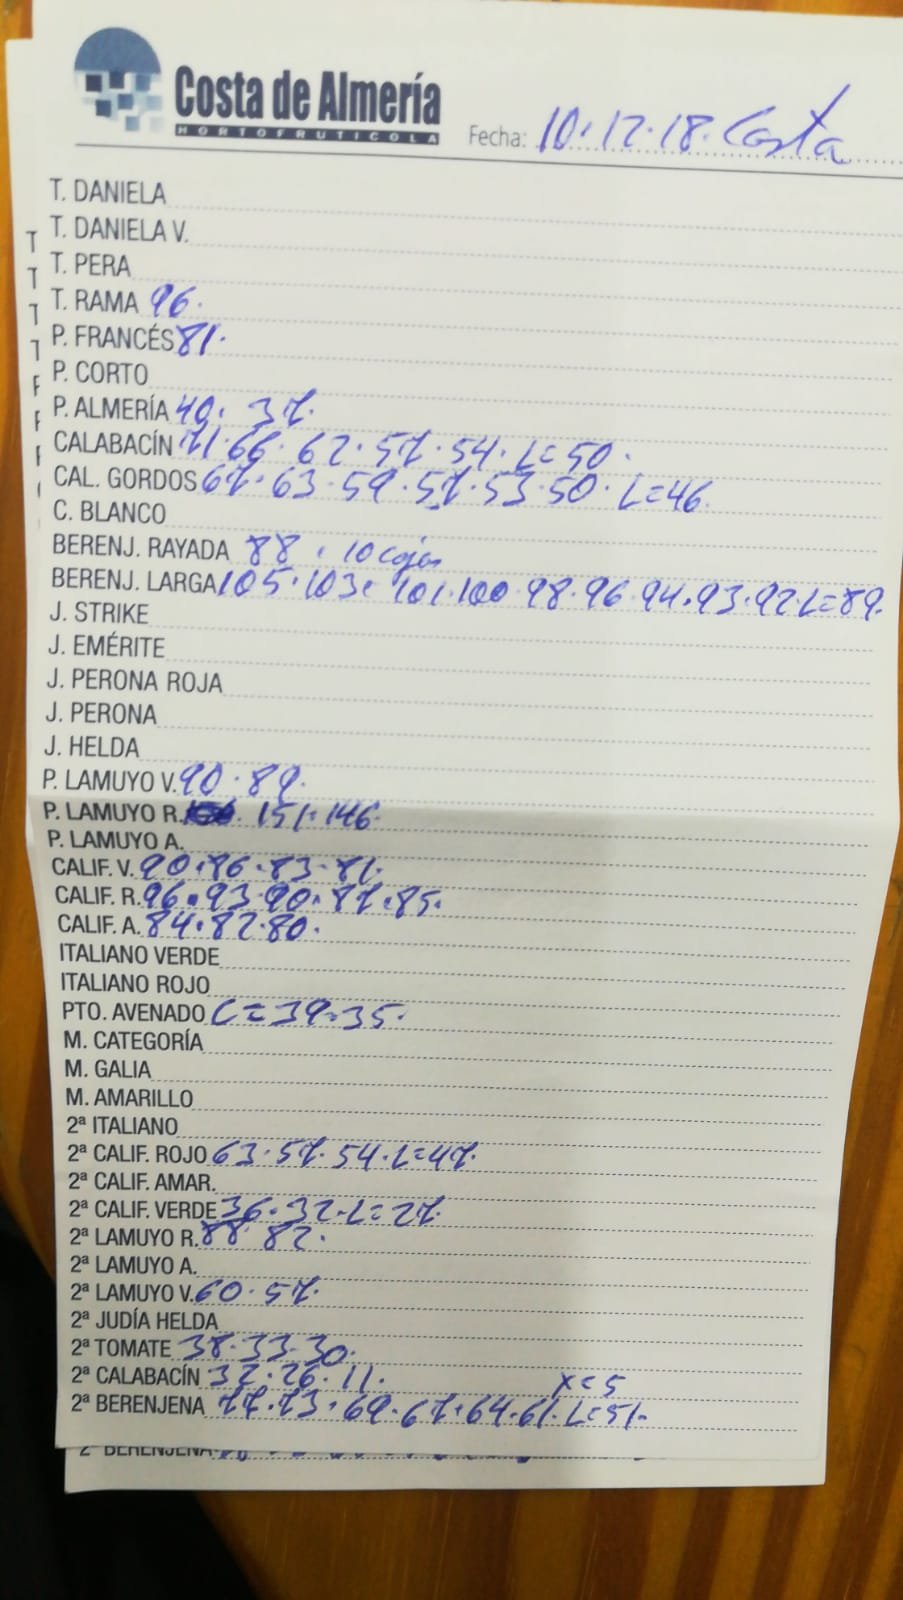 Costa de Almería
HORTOFRUTICOLA
Fecha: 10.12.18. Costa
T. DANIELA
T. DANIELA V.
T. PERA
T. RAMA 96.
P. FRANCÉS 81.
P. CORTO
P. ALMERÍA 40. 37.
CALABACÍN 71.66. 62.57.54.L=50.
CAL. GORDOS 67.63.59.57.53.50. L=46.
C. BLANCO
BERENJ. RAYADA 88. 10 cajas
BERENJ. LARGA 105.103. 101.100 98.96.94.93.92.L=89.
J. STRIKE
J. EMÉRITE
J. PERONA ROJA
J. PERONA
J. HELDA
P. LAMUYO V. 90.89.
P. LAMUYO R. 151.146.
P. LAMUYO A.
CALIF. V. 90.86.83.81.
CALIF. R. 96.93.90.87.85.
CALIF. A. 84.82.80.
ITALIANO VERDE
ITALIANO ROJO
PTO. AVENADO C=39.35.
M. CATEGORÍA
M. GALIA
M. AMARILLO
2ª ITALIANO
2ª CALIF. ROJO 63.57.54.L=47.
2ª CALIF. AMAR.
2ª CALIF. VERDE 36.32.L=27.
2ª LAMUYO R. 88.82.
2ª LAMUYO A.
2ª LAMUYO V. 60.57.
2ª JUDÍA HELDA
2ª TOMATE 38.33.30.
2ª CALABACÍN 32.26.11. X=5
2ª BERENJENA 77.73.69.67.64.61.L=51.
2ª BERENJENA